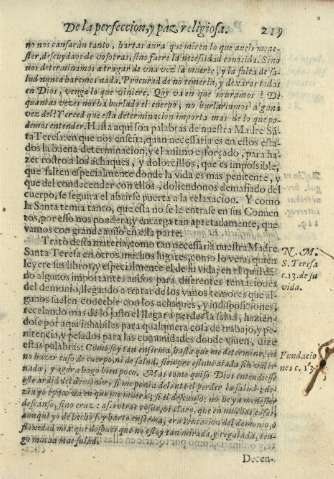 De la perfeccion, y paz religiosa. 219
no nos cansarán tanto, hartas aura que miren lo que ayais menester, descuydaos de vosotras, sino fuere la necessidad conocida. Sino
nos determinamos a tragar de una vez la muerte, y la falta de salud nunca haremos nada. Procurad de no temerla, y dexaros todas
en Dios, venga lo que viniere. Que va en que muramos? De
quantas vezes nos ha burlado el cuerpo, no burlariamos alguna
vez del? Y creed que esta determinacion importa mas de lo que podemos entender. Hasta aqui son palabras de nuestra Madre Santa
Teresa en que nos enseña, quan necessaria es en estos estados
la buena determinacion, y el animo esforçado, para hazer
rostro a los achaques, y dolorcillos, que es impossible,
que falten especialmente donde la vida es mas penitente, y
que del condecender con ellos, doliendonos demasiado del
cuerpo, se seguira el abrirse puerta a la relaxacion. Y como
la Santa temia tanto, que esta no se le entrase en sus Conuentos,
por esso nos pondera, y encarga tan apretadamente, que
vamos con grande auiso en esta parte.
Tratò desta materia, como tan necessaria nuestra Madre
Santa Teresa en otros muchos lugares, como lo vera quien
leyere sus libros, especialmente el de su vida; en el qual dando
algunos importantes auisos para diferentes tentaciones
del demonio, llegando a tratar de los vanos temores que algunos
suelen concebir con los achaques, y indisposiciones,
recelando mas de lo justo el llegar a perder la salud, haziendose
por aqui inhabiles para qualquiera cosa de trabajo, y penitencia,
y pesados para las comunidades donde viuen, dize
estas palabras. Como soy tan enferma, hasta que me determine, en
no hazer caso de cuerpo, ni de salud, siempre estuue atada sin valer
nada, y agora hago bien poco. Mas como quiso Dios entendiesse
este ardid del demonio; si me ponia delante el perder la salud dezia
yo: poco va en que me muera; si el descanso: no he ya menester
descanso, sino cruz: assi otras cosas, vi claro, que en muchas cosas,
aunque yo de hecho soy harto enferma, era tentacion del demonio,
ò floxedad mia que despues que no estoy tan mirada, y regalada, tengo
mucha mas salud.
Decen-
N. M.
S. Teresa
c. 13. de su
vida.
Fundaciones
c. 13.